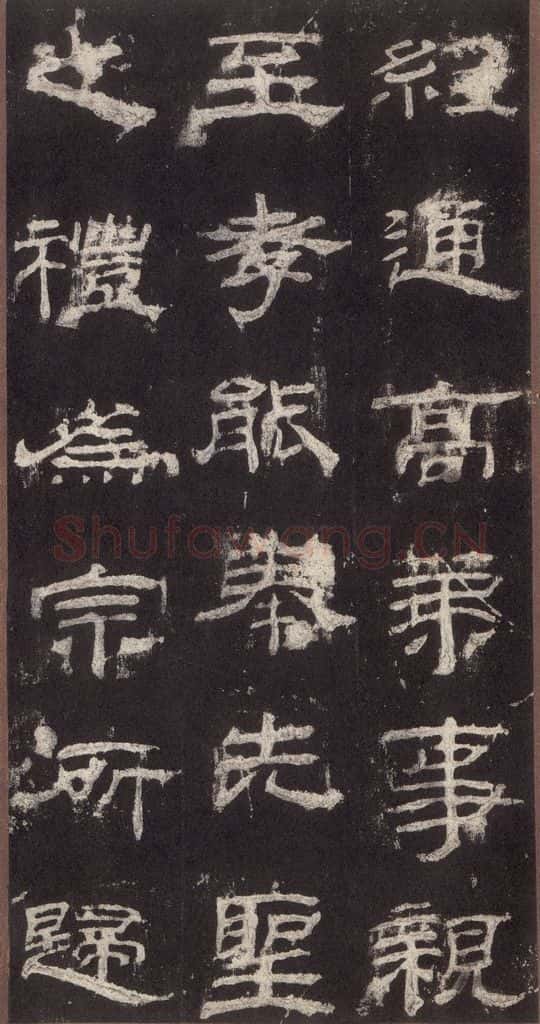 經通高第事親
至孝能奉先聖
之禮為宗所歸
Shufawang.CN